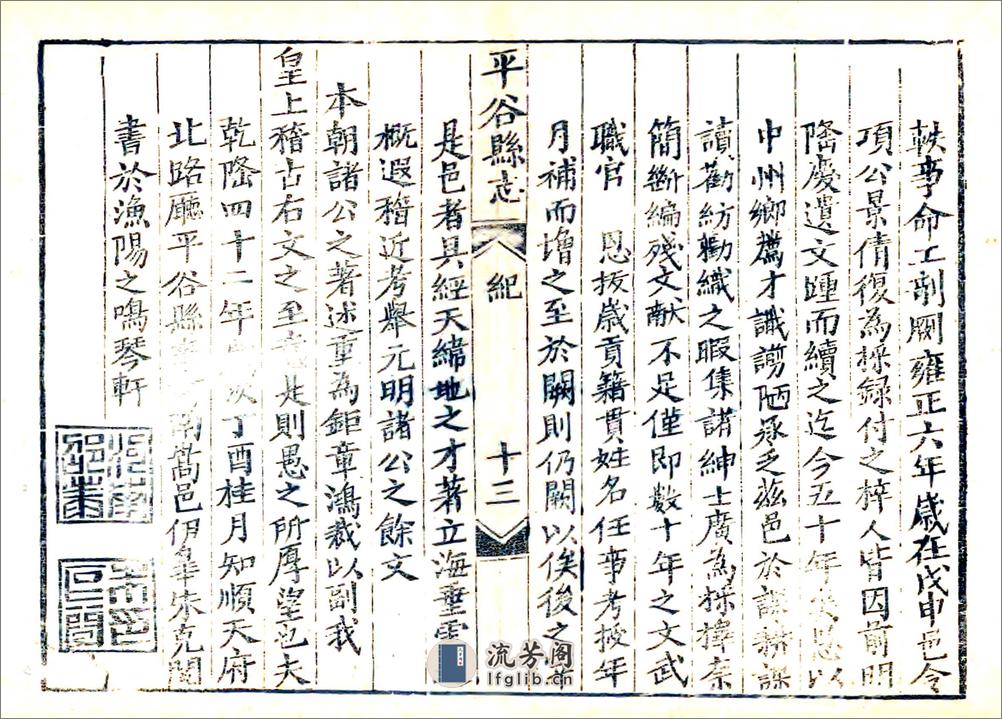 軼事命工剞劂雍正六年歲在戊申邑令
項公景倩復為採録付之梓人皆因前明
隆慶遺文踵而續之迄今五十年矣愚以
中州鄉薦才譾謭陋承乏茲邑於課耕課
讀勸紡勸織之暇集諸紳士廣為採擇奈
簡斷編殘文獻不足僅即數十年之文武
職官 恩拔歲貢籍貫姓名任事考授年
月補而增之至於闕則仍闕以俟後之
是邑者具經天緯地之才著立海垂雲
概遐稽近考舉元明諸公之餘文
平谷縣志 八 紀 十三
本朝諸公之著述重為鉅章鴻裁以副我
皇上稽古右文之至意是則愚之所厚望也夫
乾隆四十二年歲次丁酉桂月知順天府
北路廳平谷縣事 南高邑伊臯朱克閱
書於漁陽之鳴琴軒
流芳阁
lfglib.cn